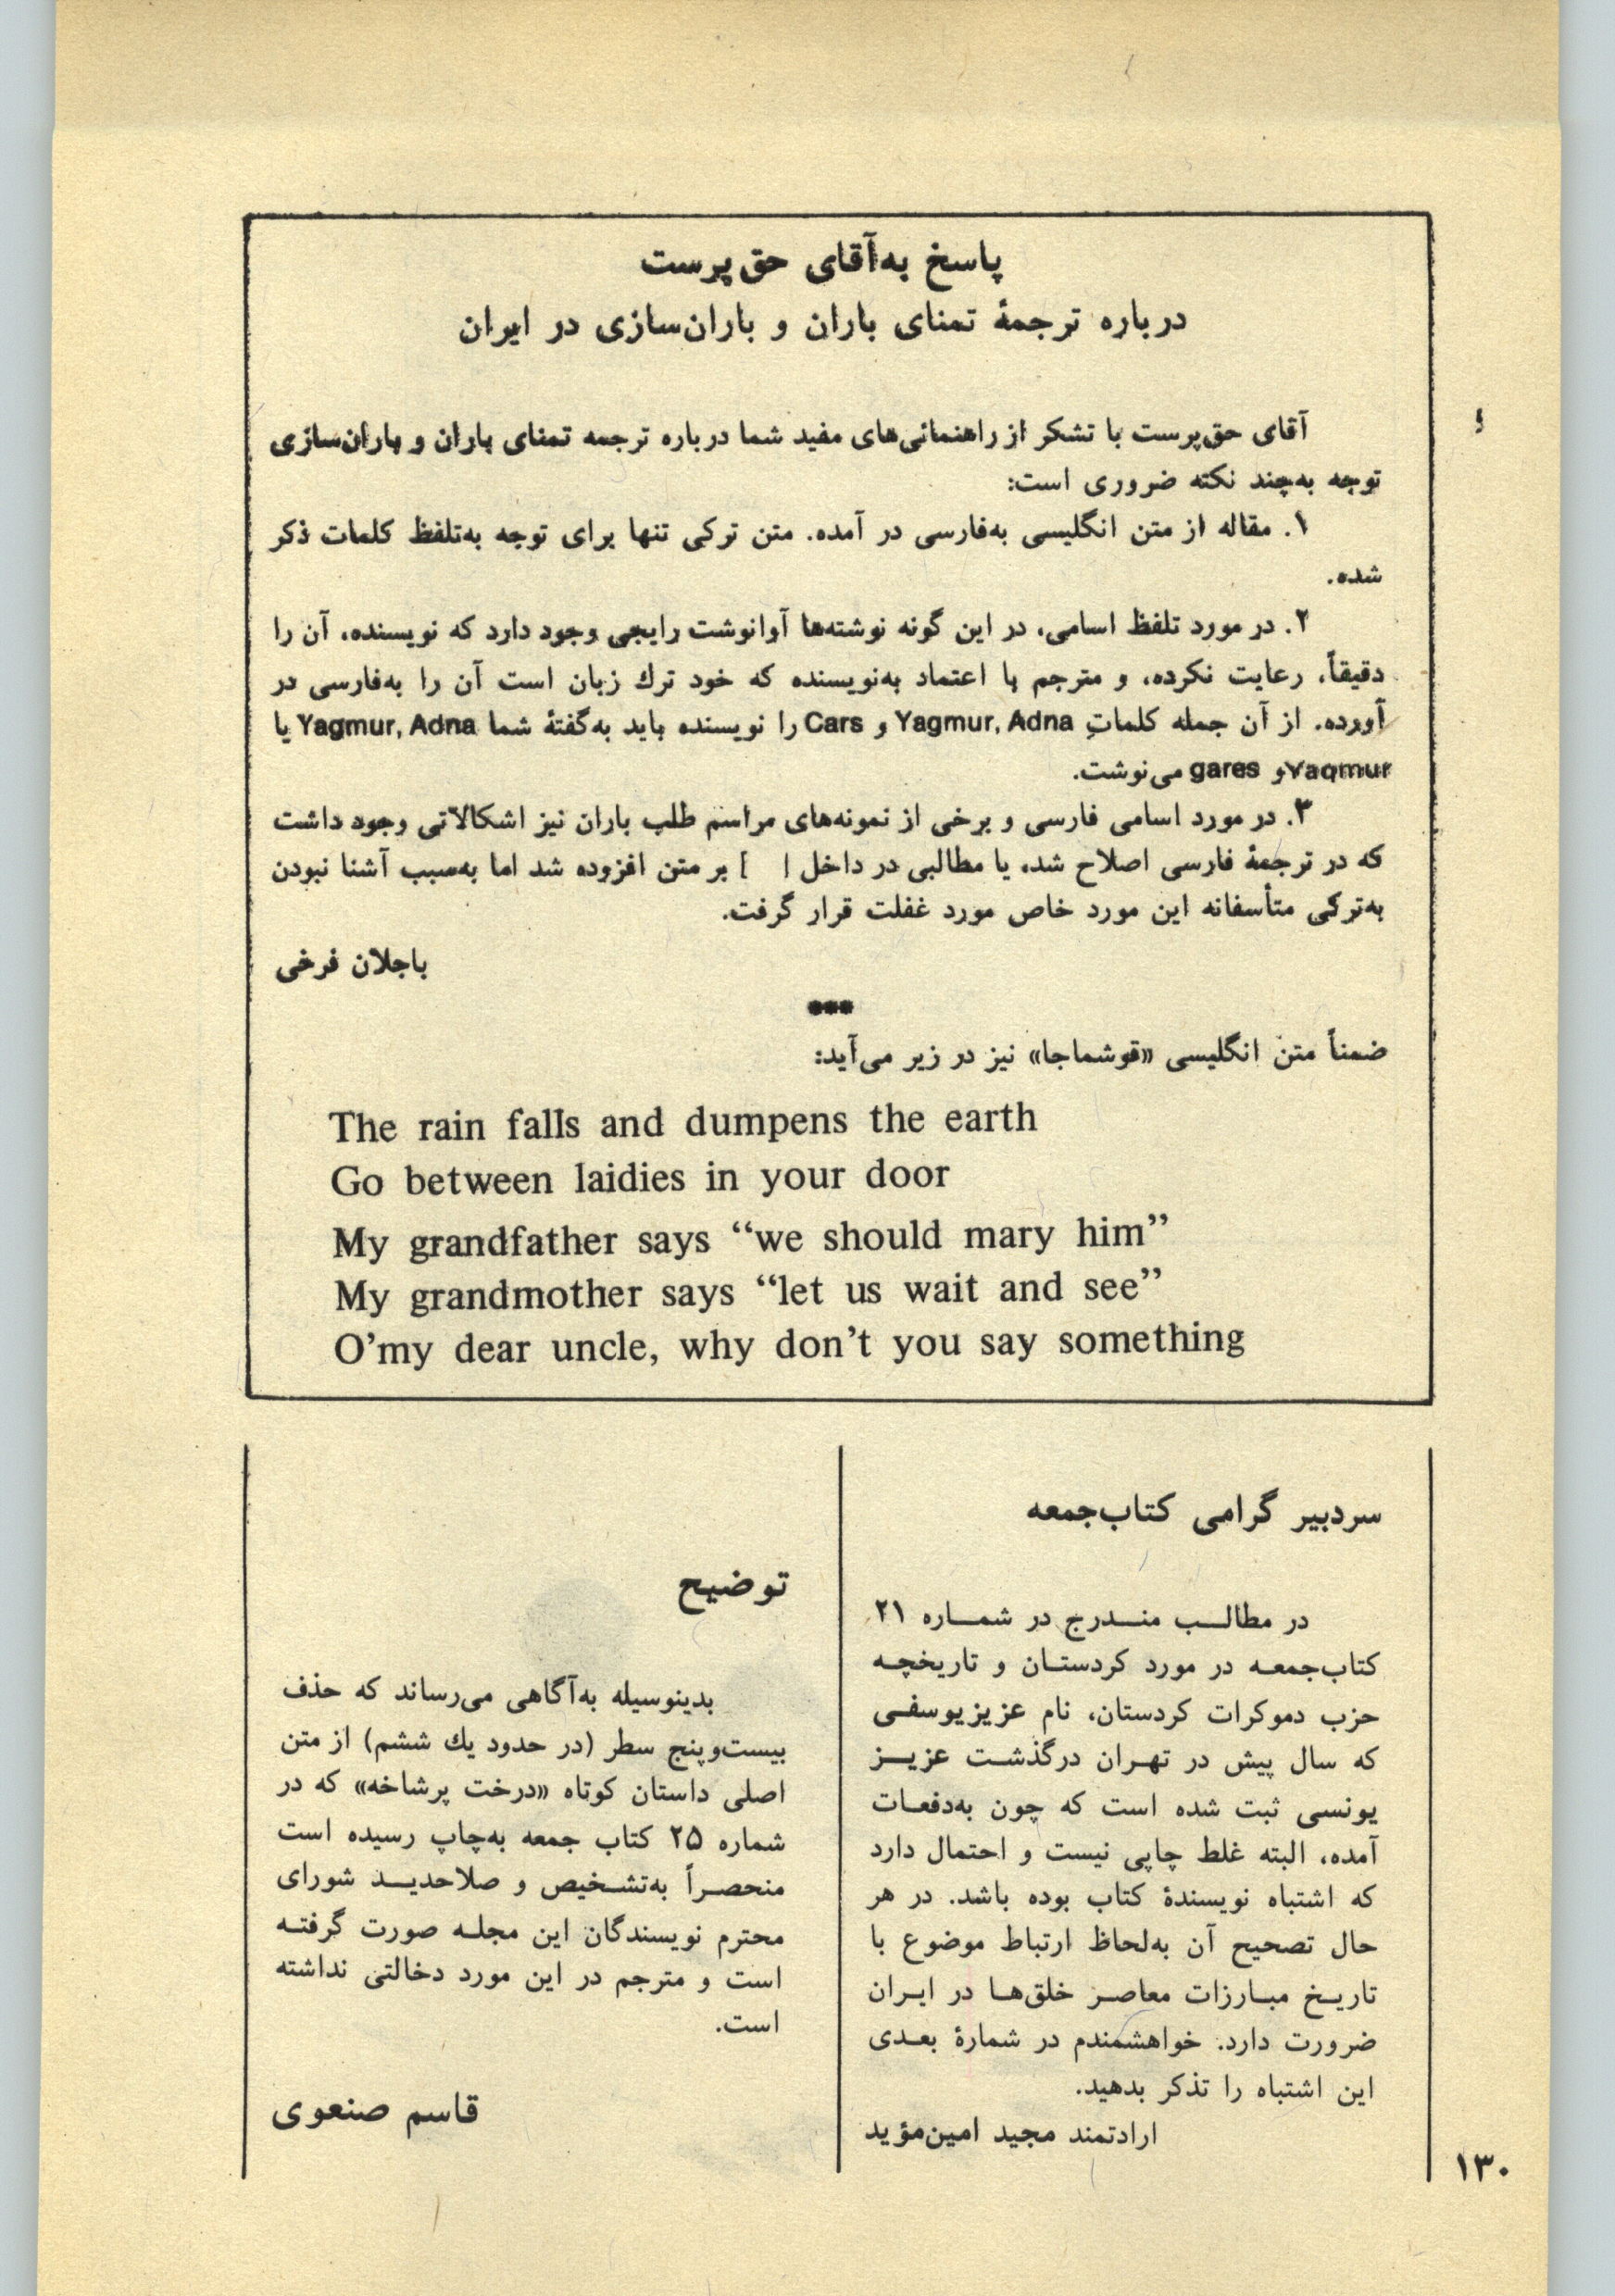 پاسخ به‌آقای حق‌پرست
درباره ترجمهٔ تمنای باران و باران‌سازی در ایران
آقای حق‌پرست با تشکر از راهنمائی‌های مفید شما درباره ترجمه تمنای باران و باران‌سازی
توجه به‌چند نکته ضروری است:
۱. مقاله از متن انگلیسی به‌فارسی در آمده. متن ترکی تنها برای توجه به‌تلفظ کلمات ذکر
شده.
۲. در مورد تلفظ اسامی، در این گونه نوشته‌ها آوانوشت رایجی وجود دارد که نویسنده، آن را
دقیقاً، رعایت نکرده، و مترجم با اعتماد به‌نویسنده که خود ترك زبان است آن را به‌فارسی در
آورده. از آن جمله کلماتِ Yagmur, Adna و Cars را نویسنده باید به‌گفتهٔ شما Yagmur, Adna یا
Yaqmur و gares می‌نوشت.
۳. در مورد اسامی فارسی و برخی از نمونه‌های مراسم طلب باران نیز اشکالاتی وجود داشت
که در ترجمهٔ فارسی اصلاح شد، یا مطالبی در داخل [ ] بر متن افزوده شد اما به‌سبب آشنا نبودن
به‌ترکی متأسفانه این مورد خاص مورد غفلت قرار گرفت.
باجلان فرخی
***
ضمناً متن انگلیسی «قوشماجا» نیز در زیر می‌آید:
The rain falls and dumpens the earth
Go between laidies in your door
My grandfather says “we should mary him”
My grandmother says “let us wait and see”
O’my dear uncle, why don’t you say something
سردبیر گرامی کتاب‌جمعه
در مطالب مندرج در شماره ۲۱
کتاب‌جمعه در مورد کردستان و تاریخچه
حزب دموکرات کردستان، نام عزیزیوسفی
که سال پیش در تهران درگذشت عزیز
یونسی ثبت شده است که چون به‌دفعات
آمده، البته غلط چاپی نیست و احتمال دارد
که اشتباه نویسندهٔ کتاب بوده باشد. در هر
حال تصحیح آن به‌لحاظ ارتباط موضوع با
تاریخ مبارزات معاصر خلق‌ها در ایران
ضرورت دارد. خواهشمندم در شمارهٔ بعدی
این اشتباه را تذکر بدهید.
ارادتمند مجید امین‌مؤید
توضیح
بدینوسیله به‌آگاهی می‌رساند که حذف
بیست‌وپنج سطر (در حدود یك ششم) از متن
اصلی داستان کوتاه «درخت پرشاخه» که در
شماره ۲۵ کتاب جمعه به‌چاپ رسیده است
منحصراً به‌تشخیص و صلاحدید شورای
محترم نویسندگان این مجله صورت گرفته
است و مترجم در این مورد دخالتی نداشته
است.
قاسم صنعوی
۱۳۰